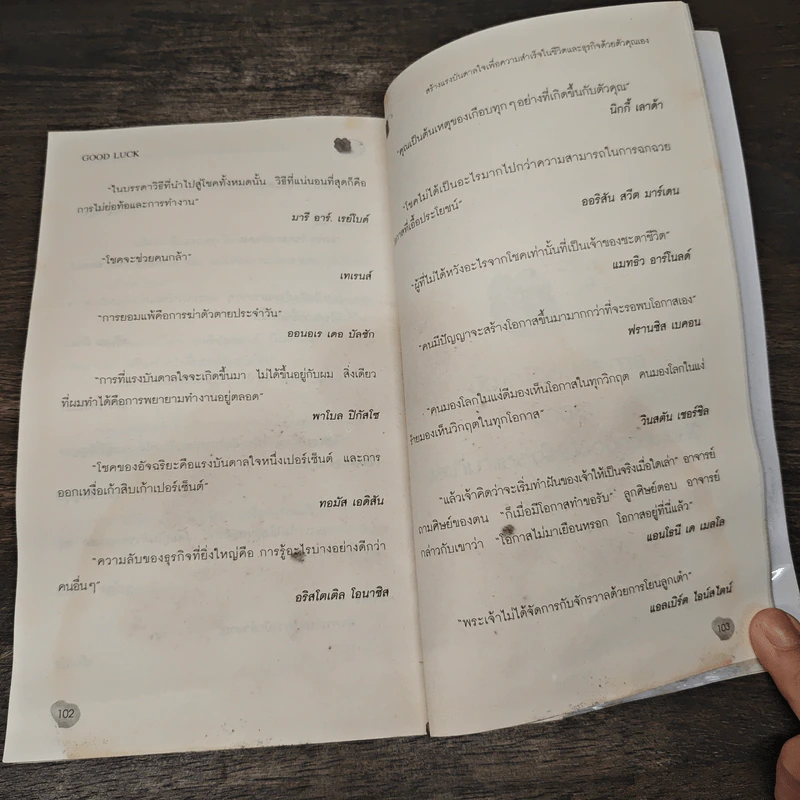 GOOD LUCK
"ในบรรดาวิธีที่นำไปสู่โชคทั้งหมดนั้น วิธีที่แน่นอนที่สุดก็คือ
การไม่ย่อท้อและการทำงาน"
มารี อาร์. เรย์ไบด์
"โชคจะช่วยคนกล้า"
เทเรนส์
"การยอมแพ้คือการฆ่าตัวตายประจำวัน"
ออนอเร เดอ บัลซัก
"การที่แรงบันดาลใจจะเกิดขึ้นมา ไม่ได้ขึ้นอยู่กับผม สิ่งเดียว
ที่ผมทำได้คือการพยายามทำงานอยู่ตลอด"
พาโบล ปิกัสโซ
"โชคของอัจฉริยะคือแรงบันดาลใจหนึ่งเปอร์เซ็นต์ และการ
ออกเหงื่อเก้าสิบเก้าเปอร์เซ็นต์"
ทอมัส เอดิสัน
"ความลับของธุรกิจที่ยิ่งใหญ่คือ การรู้อะไรบางอย่างดีกว่า
คนอื่นๆ"
อริสโตเติล โอนาซิส
102
สร้างแรงบันดาลใจเพื่อความสำเร็จในชีวิตและธุรกิจด้วยตัวคุณเอง
"คุณเป็นต้นเหตุของเกือบทุกๆ อย่างที่เกิดขึ้นกับตัวคุณ"
นิกกี้ เลาด้า
"โชคไม่ได้เป็นอะไรมากไปกว่าความสามารถในการฉกฉวย
โอกาสที่เอื้อประโยชน์"
ออริสัน สวีต มาร์เดน
"ผู้ที่ไม่ได้หวังอะไรจากโชคเท่านั้นที่เป็นเจ้าของชะตาชีวิต"
แมทธิว อาร์โนลด์
"คนมีปัญญาจะสร้างโอกาสขึ้นมามากกว่าที่จะรอพบโอกาสเอง"
ฟรานซิส เบคอน
"คนมองโลกในแง่ดีมองเห็นโอกาสในทุกวิกฤต คนมองโลกในแง่
ร้ายมองเห็นวิกฤตในทุกโอกาส"
วินสตัน เชอร์ชิล
"แล้วเจ้าคิดว่าจะเริ่มทำฝันของเจ้าให้เป็นจริงเมื่อใดเล่า" อาจารย์
ถามศิษย์ของตน "ก็เมื่อมีโอกาสทำขอรับ" ลูกศิษย์ตอบ อาจารย์
กล่าวกับเขาว่า "โอกาสไม่มาเยือนหรอก โอกาสอยู่ที่นี่แล้ว"
แอนโธนี เด เมลโล
"พระเจ้าไม่ได้จัดการกับจักรวาลด้วยการโยนลูกเต๋า"
แอลเบิร์ต ไอน์สไตน์
103